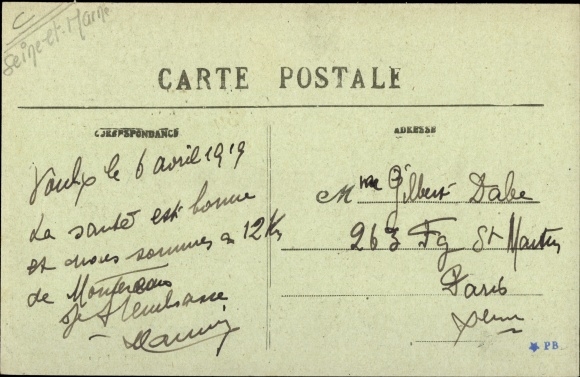 Seine-et-Marne
CARTE POSTALE
CORRESPONDANCE
ADRESSE
le 6 avril 1919
La santé est bonne
et nous sommes à 12 Km
de Montereau
Je t'embrasse
Mme Gilbert Dabe
263 Fg St Martin
Paris
PB